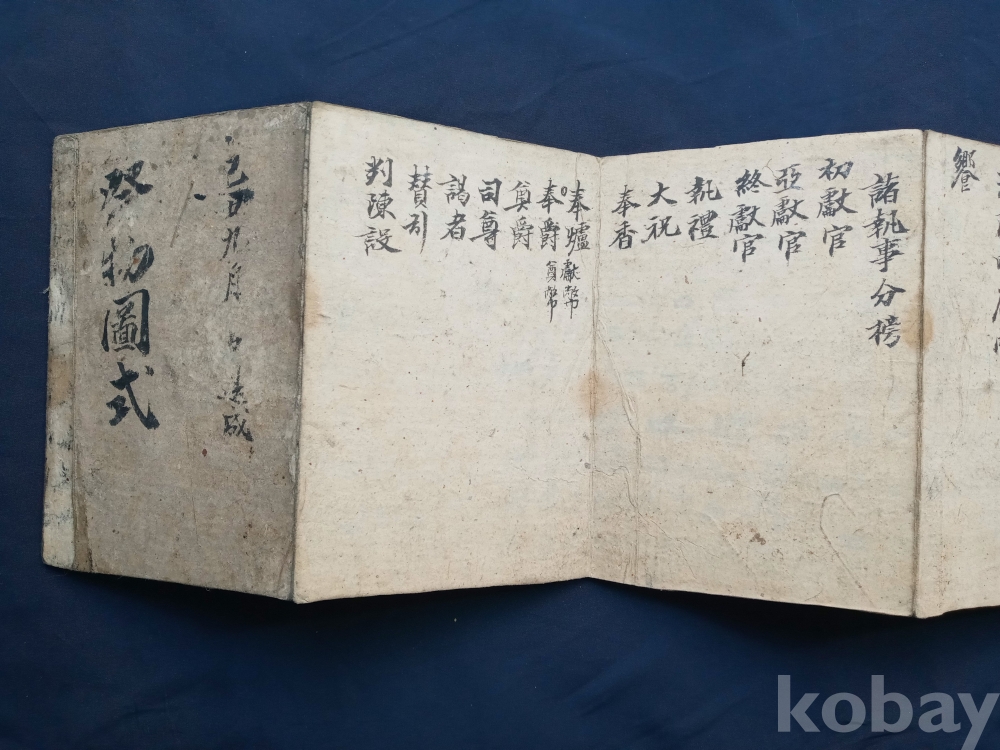 饗
諸執事分榜
初獻官
亞獻官
終獻官
執禮
大祝
奉香
奉爐 獻幣
奉爵 奠幣
奠爵
司尊
謁者
賛引
判陳設
九月 日 造成
祭物圖式
kobay